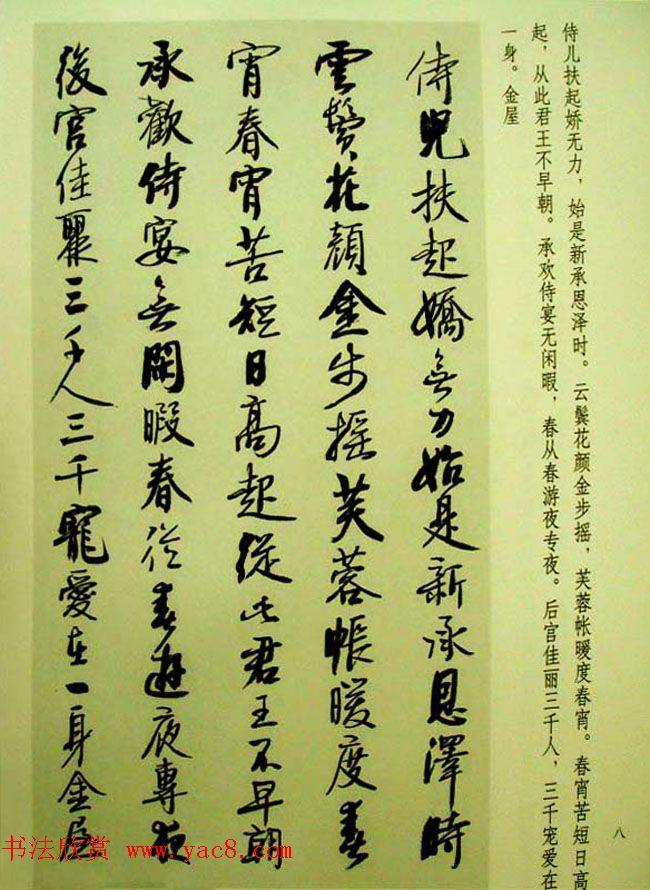 侍儿扶起娇无力，始是新承恩泽时。云鬓花颜金步摇，芙蓉帐暖度春宵。春宵苦短日高
起，从此君王不早朝。承欢侍宴无闲暇，春从春游夜专夜。后宫佳丽三千人，三千宠爱在
一身。金屋
八
侍兒扶起嬌無力始是新承恩澤時
雲鬢花顏金步搖芙蓉帳暖度春
宵春宵苦短日高起從此君王不早朝
承歡侍宴無閑暇春從春遊夜專夜
後宮佳麗三千人三千寵愛在一身金屋
书法欣赏 www.yac8.com